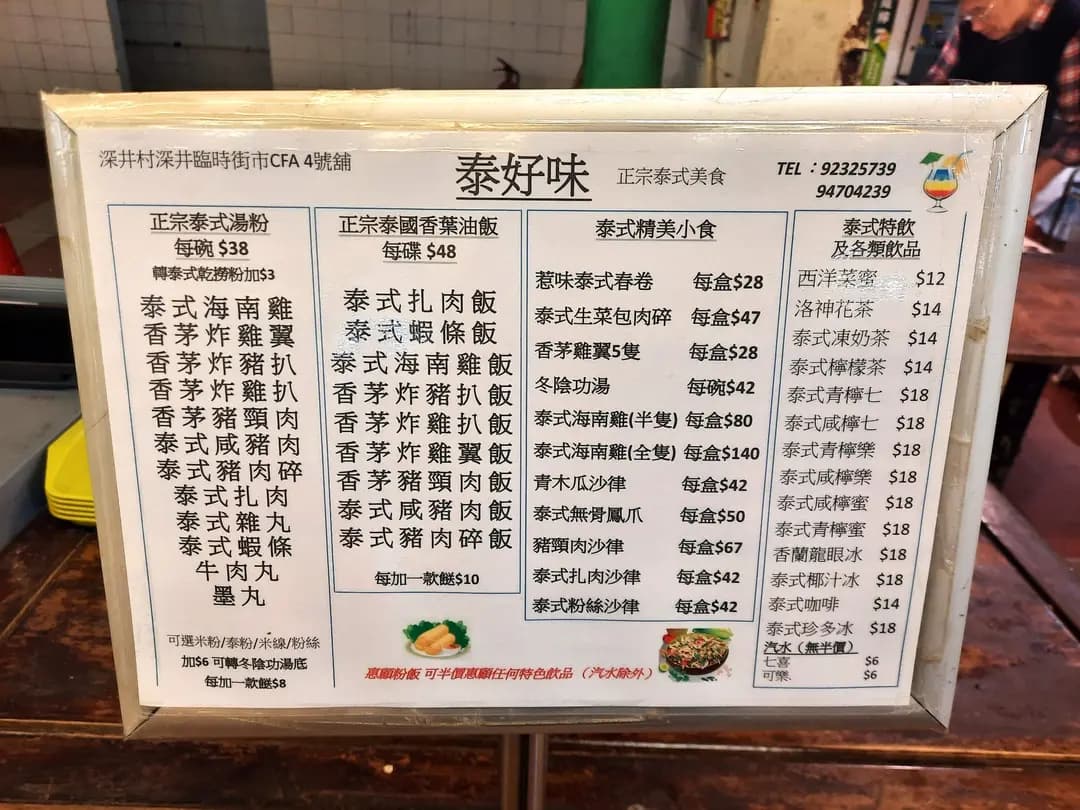 深井村深井臨時街市CFA 4號舖
泰好味
正宗泰式美食
TEL：92325739
94704239
正宗泰式湯粉
每碗 $38
轉泰式乾撈粉加$3
泰式海南雞
香茅炸雞翼
香茅炸豬扒
香茅炸雞扒
香茅豬頸肉
泰式咸豬肉
泰式豬肉碎
泰式扎肉
泰式雜丸
泰式蝦條
牛肉丸
墨丸
可選米粉/泰粉/米線/粉絲
加$6 可轉冬陰功湯底
每加一款餸$8
正宗泰國香葉油飯
每碟 $48
泰式扎肉飯
泰式蝦條飯
泰式海南雞飯
香茅炸豬扒飯
香茅炸雞扒飯
香茅炸雞翼飯
香茅豬頸肉飯
泰式咸豬肉飯
泰式豬肉碎飯
每加一款餸$10
泰式精美小食
惹味泰式春卷 每盒$28
泰式生菜包肉碎 每盒$47
香茅雞翼5隻 每盒$28
冬陰功湯 每碗$42
泰式海南雞(半隻) 每盒$80
泰式海南雞(全隻) 每盒$140
青木瓜沙律 每盒$42
泰式無骨鳳爪 每盒$50
豬頸肉沙律 每盒$67
泰式扎肉沙律 每盒$42
泰式粉絲沙律 每盒$42
泰式特飲
及各類飲品
西洋菜蜜 $12
洛神花茶 $14
泰式凍奶茶 $14
泰式檸檬茶 $14
泰式青檸七 $18
泰式咸檸七 $18
泰式青檸樂 $18
泰式咸檸樂 $18
泰式咸檸蜜 $18
泰式青檸蜜 $18
香蘭龍眼冰 $18
泰式椰汁冰 $18
泰式咖啡 $14
泰式珍多冰 $18
汽水（無半價）
七喜 $6
可樂 $6
惠顧粉飯 可半價惠顧任何特色飲品 （汽水除外）